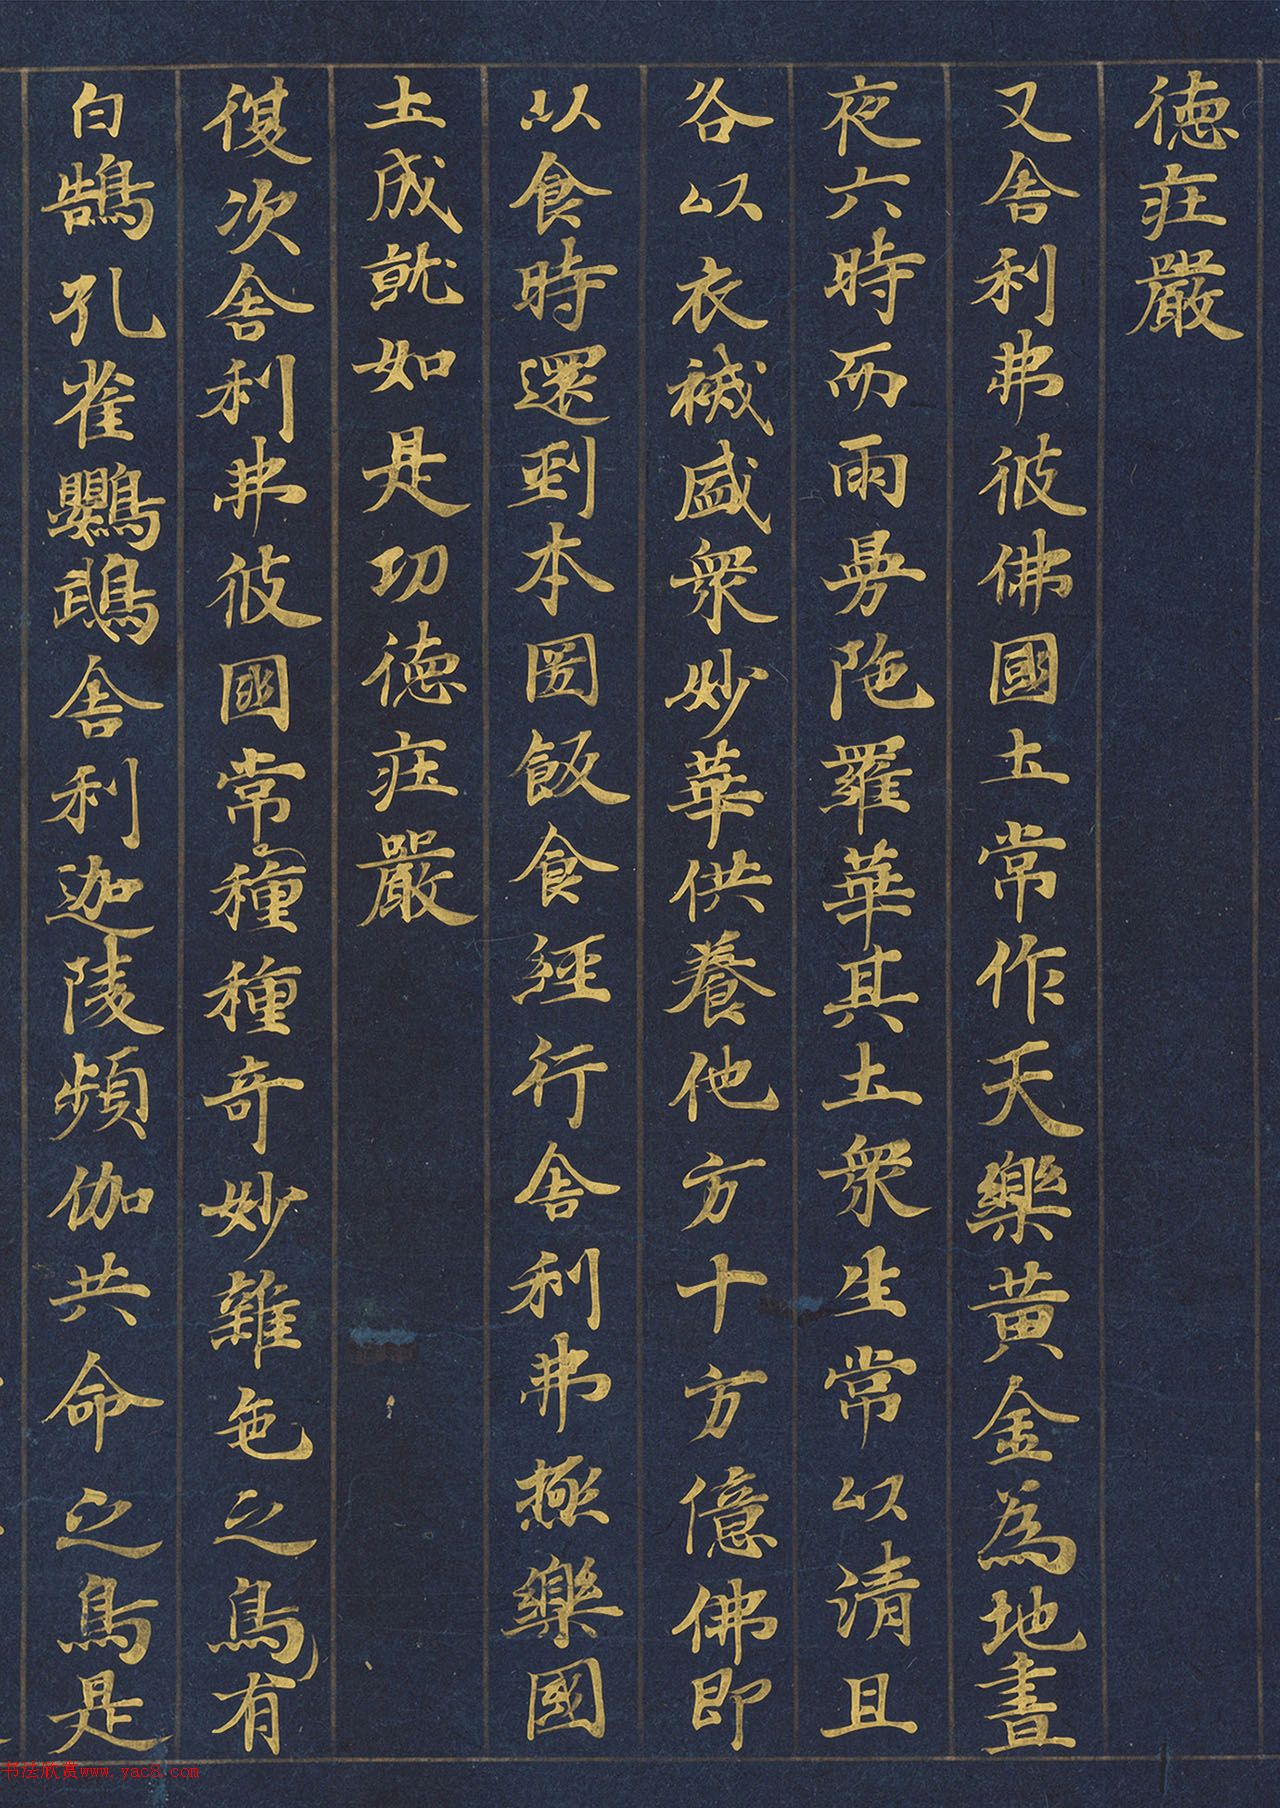 德莊嚴
又舍利弗彼佛國土常作天樂黃金為地晝
夜六時而雨曼陁羅華其土衆生常以清旦
各以衣裓盛衆妙華供養他方十方億佛即
以食時還到本國飯食經行舍利弗極樂國
土成就如是功德莊嚴
復次舍利弗彼國常種種奇妙雜色之鳥有
白鵠孔雀鸚鵡舍利迦陵頻伽共命之鳥是
书法欣赏www.yac8.com